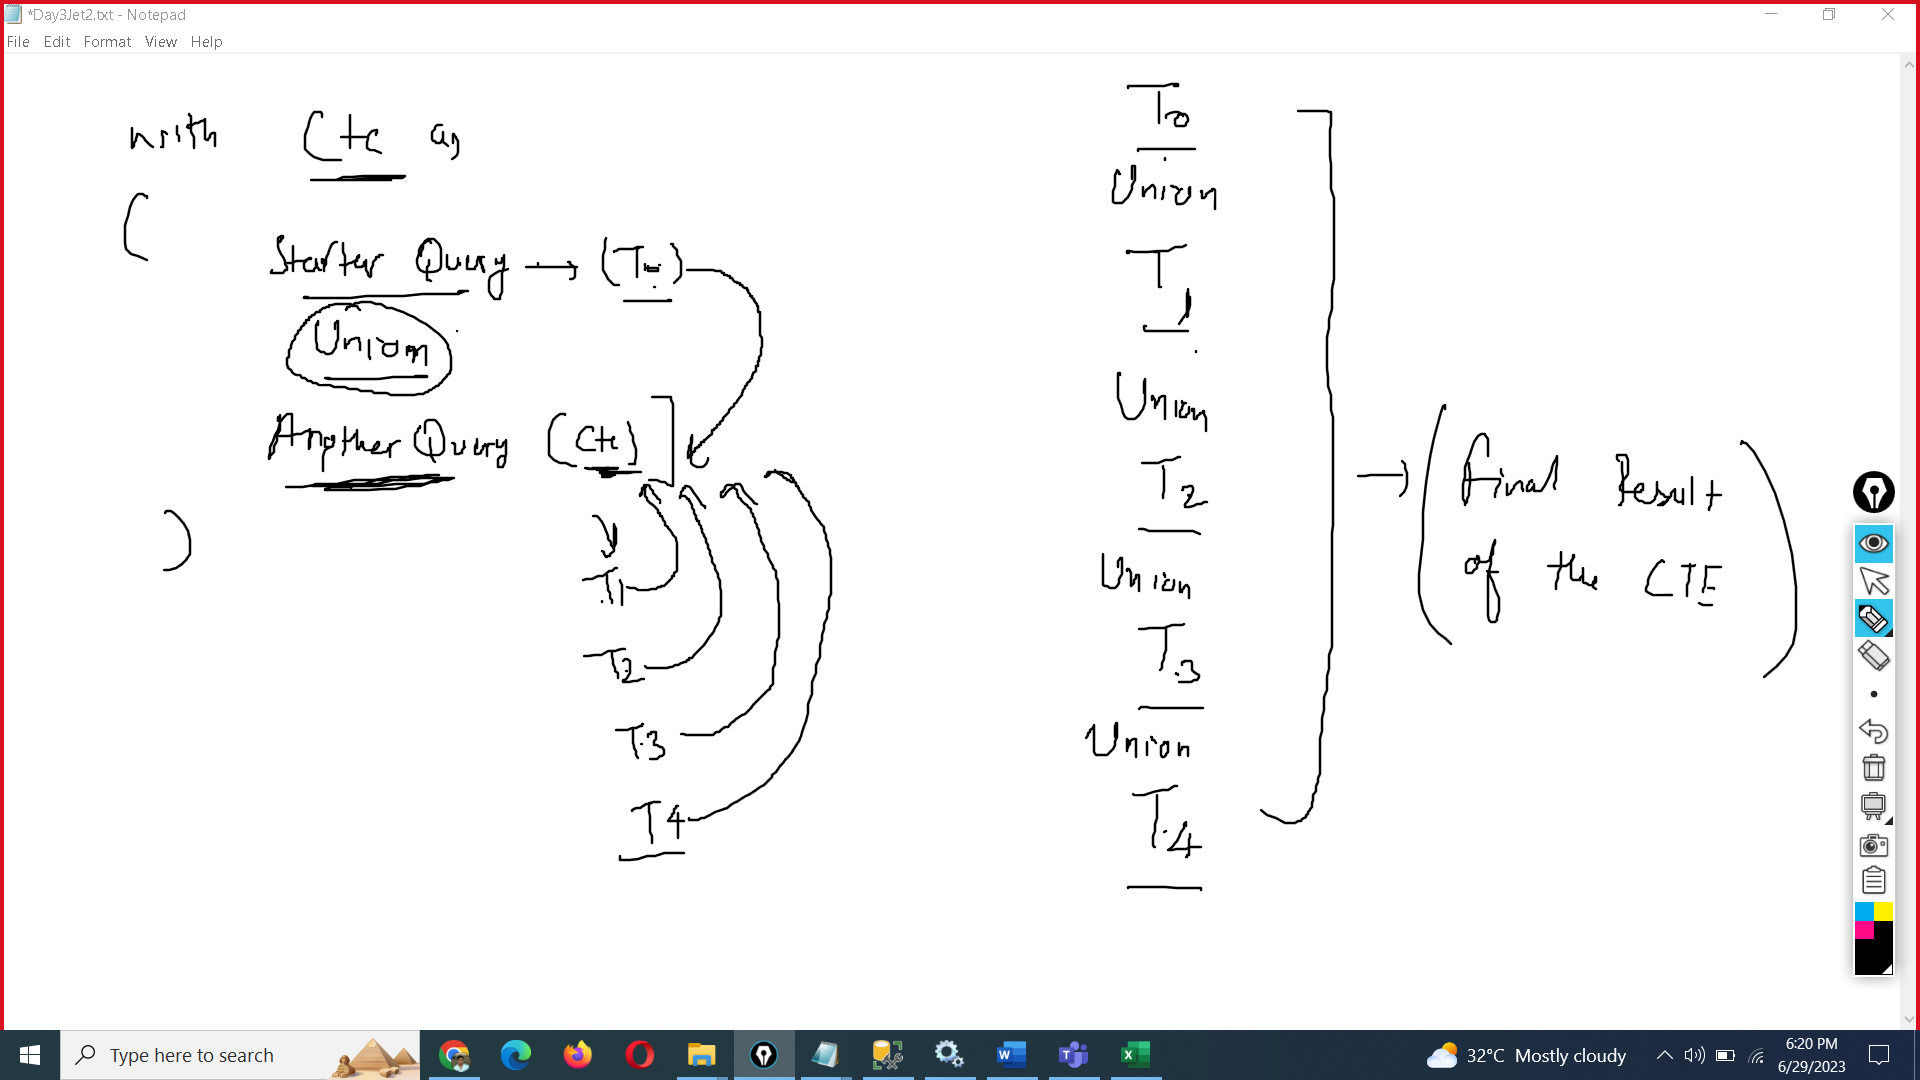 *Day3Jet2.txt - Notepad
File Edit Format View Help
with Cte as
(
Starter Query → (T )
Union
Another Query (Cte)
)
T1
T2
T3
T4
T0
Union
T1
Union
T2
Union
T3
Union
T4
→ (Final Result
of the CTE)
Type here to search
32°C Mostly cloudy
6:20 PM
6/29/2023